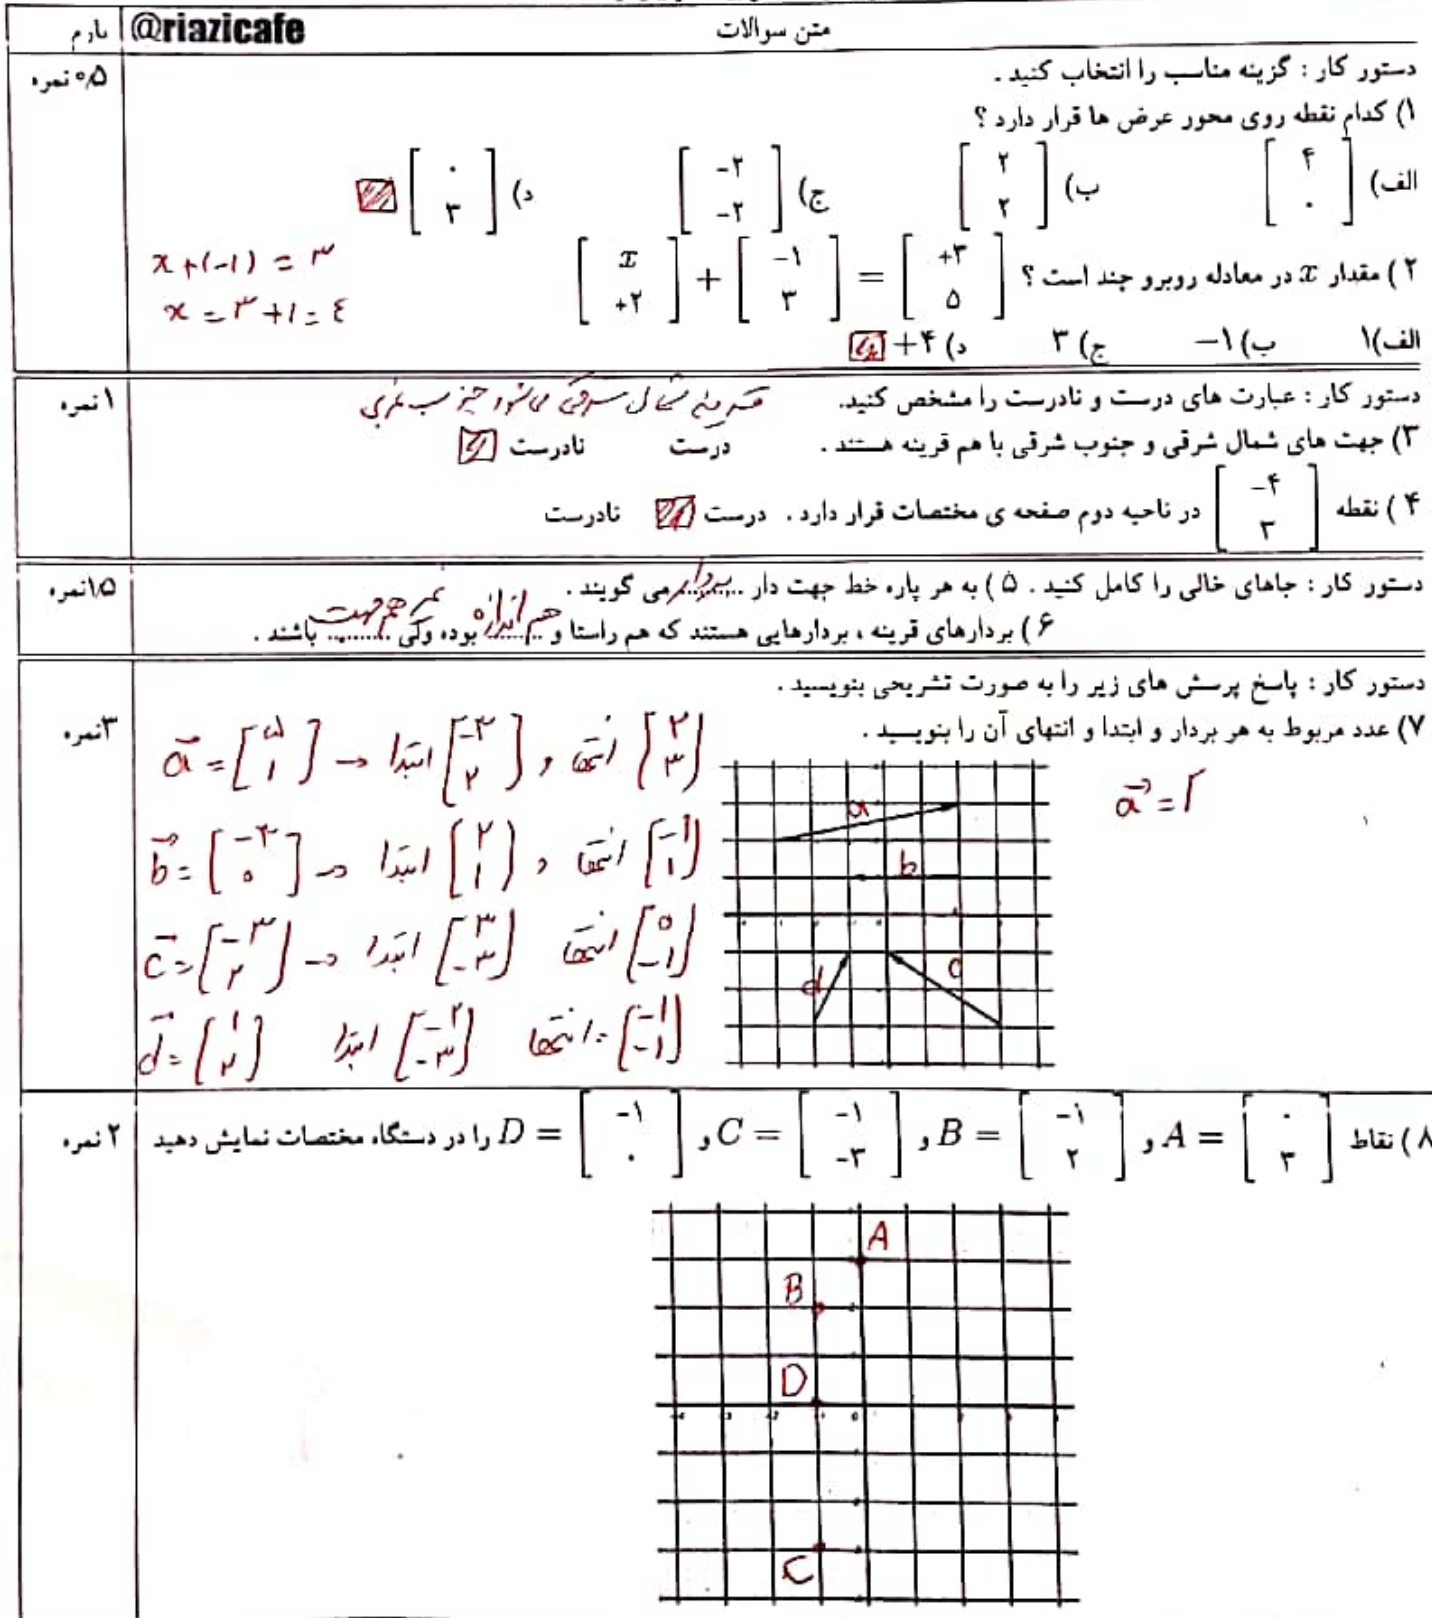 متن سوالات @riazicafe بارم
دستور کار : گزینه مناسب را انتخاب کنید . ۰/۵ نمره
۱) کدام نقطه روی محور عرض ها قرار دارد ؟
الف) [۴ ۰] ب) [۲ ۲] ج) [-۲ -۲] د) [۰ ۳]
۲) مقدار x در معادله روبرو چند است ؟ [x +۲] + [-۱ ۳] = [+۳ ۵]
x+(-1) = ۳
x = ۳+1 = ٤
الف)۱ ب)۱− ج) ۳ د) ۴+
دستور کار : عبارت های درست و نادرست را مشخص کنید. ۱ نمره
قرینه شمال شرقی می‌شود جنوب غربی
۳) جهت های شمال شرقی و جنوب شرقی با هم قرینه هستند . درست نادرست
۴) نقطه [-۴ ۳] در ناحیه دوم صفحه ی مختصات قرار دارد . درست نادرست
دستور کار : جاهای خالی را کامل کنید . ۵) به هر پاره خط جهت دار بردار می گویند . ۱/۵نمره
۶) بردارهای قرینه ، بردارهایی هستند که هم راستا و هم اندازه بوده ولی غیر هم جهت باشند .
دستور کار : پاسخ پرسش های زیر را به صورت تشریحی بنویسید .
۷) عدد مربوط به هر بردار و ابتدا و انتهای آن را بنویسید . ۳نمره
a = [۵ ۱] → ابتدا [-۳ ۲] و انتها [۲ ۳]
a =
b = [-۳ ۰] → ابتدا [۲ ۱] و انتها [-۱ ۱]
c = [-۳ ۲] → ابتدا [۳ -۳] انتها [۰ -۱]
d = [۱ ۲] ابتدا [-۲ -۳] انتها = [-۱ -۱]
a
b
c
d
۸) نقاط A = [۰ ۳] و B = [-۱ ۲] و C = [-۱ -۳] و D = [-۱ ۰] را در دستگاه مختصات نمایش دهید ۲ نمره
A
B
D
-4 -3 -2 -1 0
C